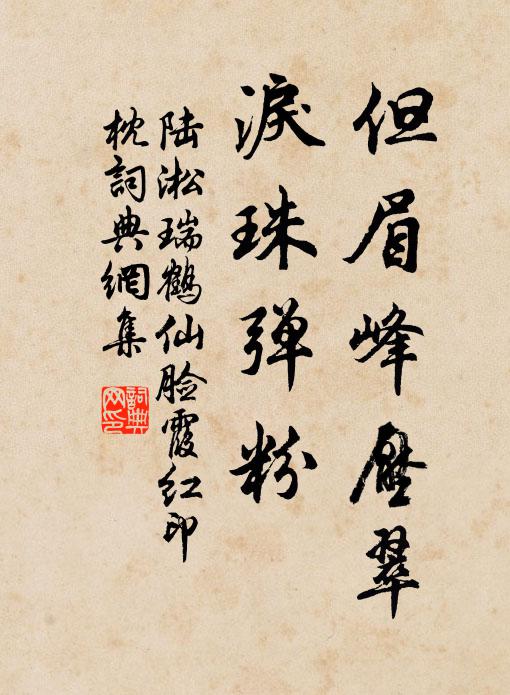 但眉峰压翠
淚珠弹粉
陆淞瑞鶴仙脸霞红印
枕詞典網集
詞典网印